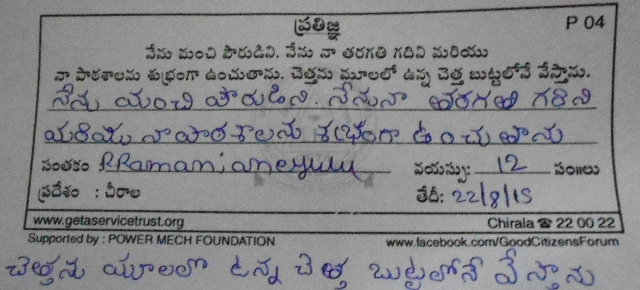 ప్రతిజ్ఞ
P 04
నేను మంచి పౌరుడిని. నేను నా తరగతి గదిని మరియు
నా పాఠశాలను శుభ్రంగా ఉంచుతాను. చెత్తను మూలలో ఉన్న చెత్త బుట్టలోనే వేస్తాను.
నేను మంచి పౌరుడిని. నేను నా తరగతి గదిని
మరియు నా పాఠశాలను శుభ్రంగా ఉంచుతాను
సంతకం P.Ramanjaneyulu వయస్సు: 12 సం॥లు
ప్రదేశం : చీరాల తేదీ: 22/8/15
www.getaservicetrust.org Chirala ☎ 22 00 22
Supported by : POWER MECH FOUNDATION www.facebook.com/GoodCitizensForum
చెత్తను మూలలో ఉన్న చెత్త బుట్టలోనే వేస్తాను